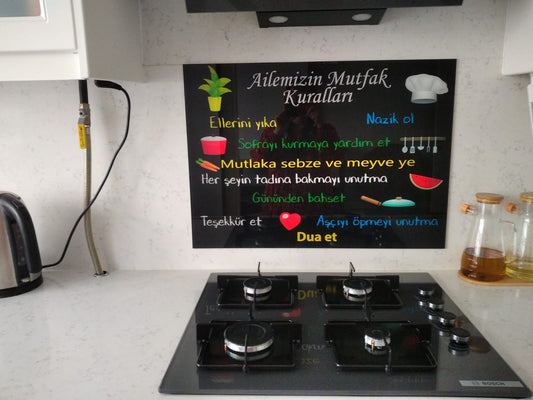 Ailemizin Mutfak
Kuralları
Ellerini yıka
Nazik ol
Sofrayı kurmaya yardım et
Mutlaka sebze ve meyve ye
Her şeyin tadına bakmayı unutma
Gününden bahset
Teşekkür et
Aşçıyı öpmeyi unutma
Dua et
BOSCH